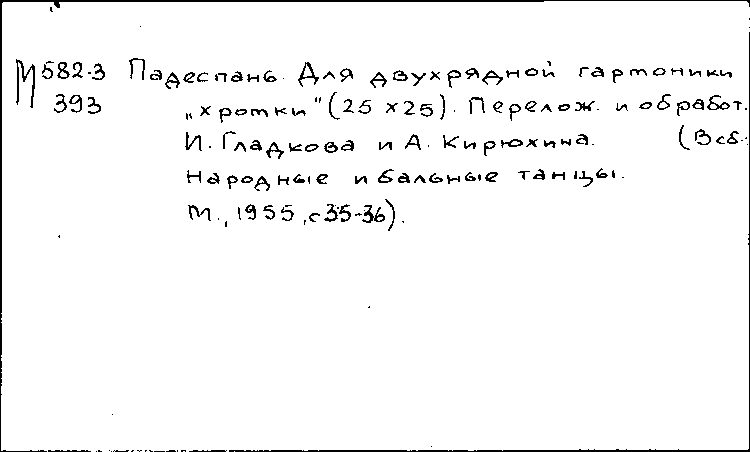 М 582-3 Падеспань. Для двухрядной гармоники
393 „хромки" (25 x 25). Перелож. и обработ.
И. Гладкова и А. Кирюхина. (В сб.:
Народные и бальные танцы.
М., 1955, с 35-36).